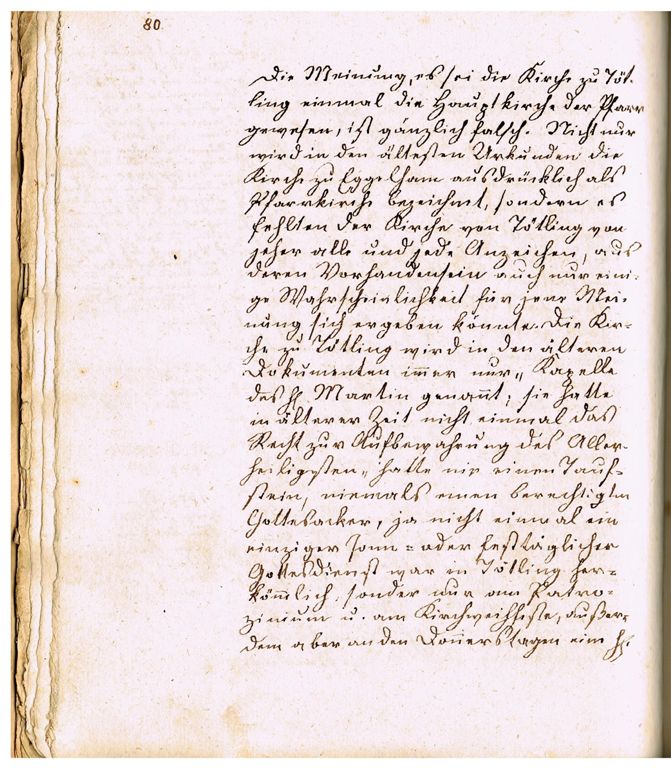 80.
Die Meinung, es sei die Kirche zu Töt-
ling einmal die Hauptkirche der Pfarr
gewesen, ist gänzlich falsch. Nicht nur
wird in den ältesten Urkunden die
Kirche zu Eggelham ausdrücklich als
Pfarrkirche bezeichnet, sondern es
fehlten der Kirche von Tötling von
jeher alle und jede Anzeichen, aus
deren Vorhandensein auch nur eini-
ge Wahrscheinlichkeit für jene Mei-
nung sich ergeben könnte. Die Kir-
che zu Tötling wird in den älteren
Dokumenten immer nur „Kapelle
des hl. Martin genannt; sie hatte
in älterer Zeit nicht einmal das
Recht zur Aufbewahrung des Aller-
heiligsten, hatte nie einen Tauf-
stein, niemals einen berechtigten
Gottesacker, ja nicht einmal ein
einziger Sonn- oder festtäglicher
Gottesdienst war in Tötling her-
kömlich, sonder nur am Patro-
zinium u. am Kirchweihfeste, außer-
dem aber an den Donnerstagen eine hl.